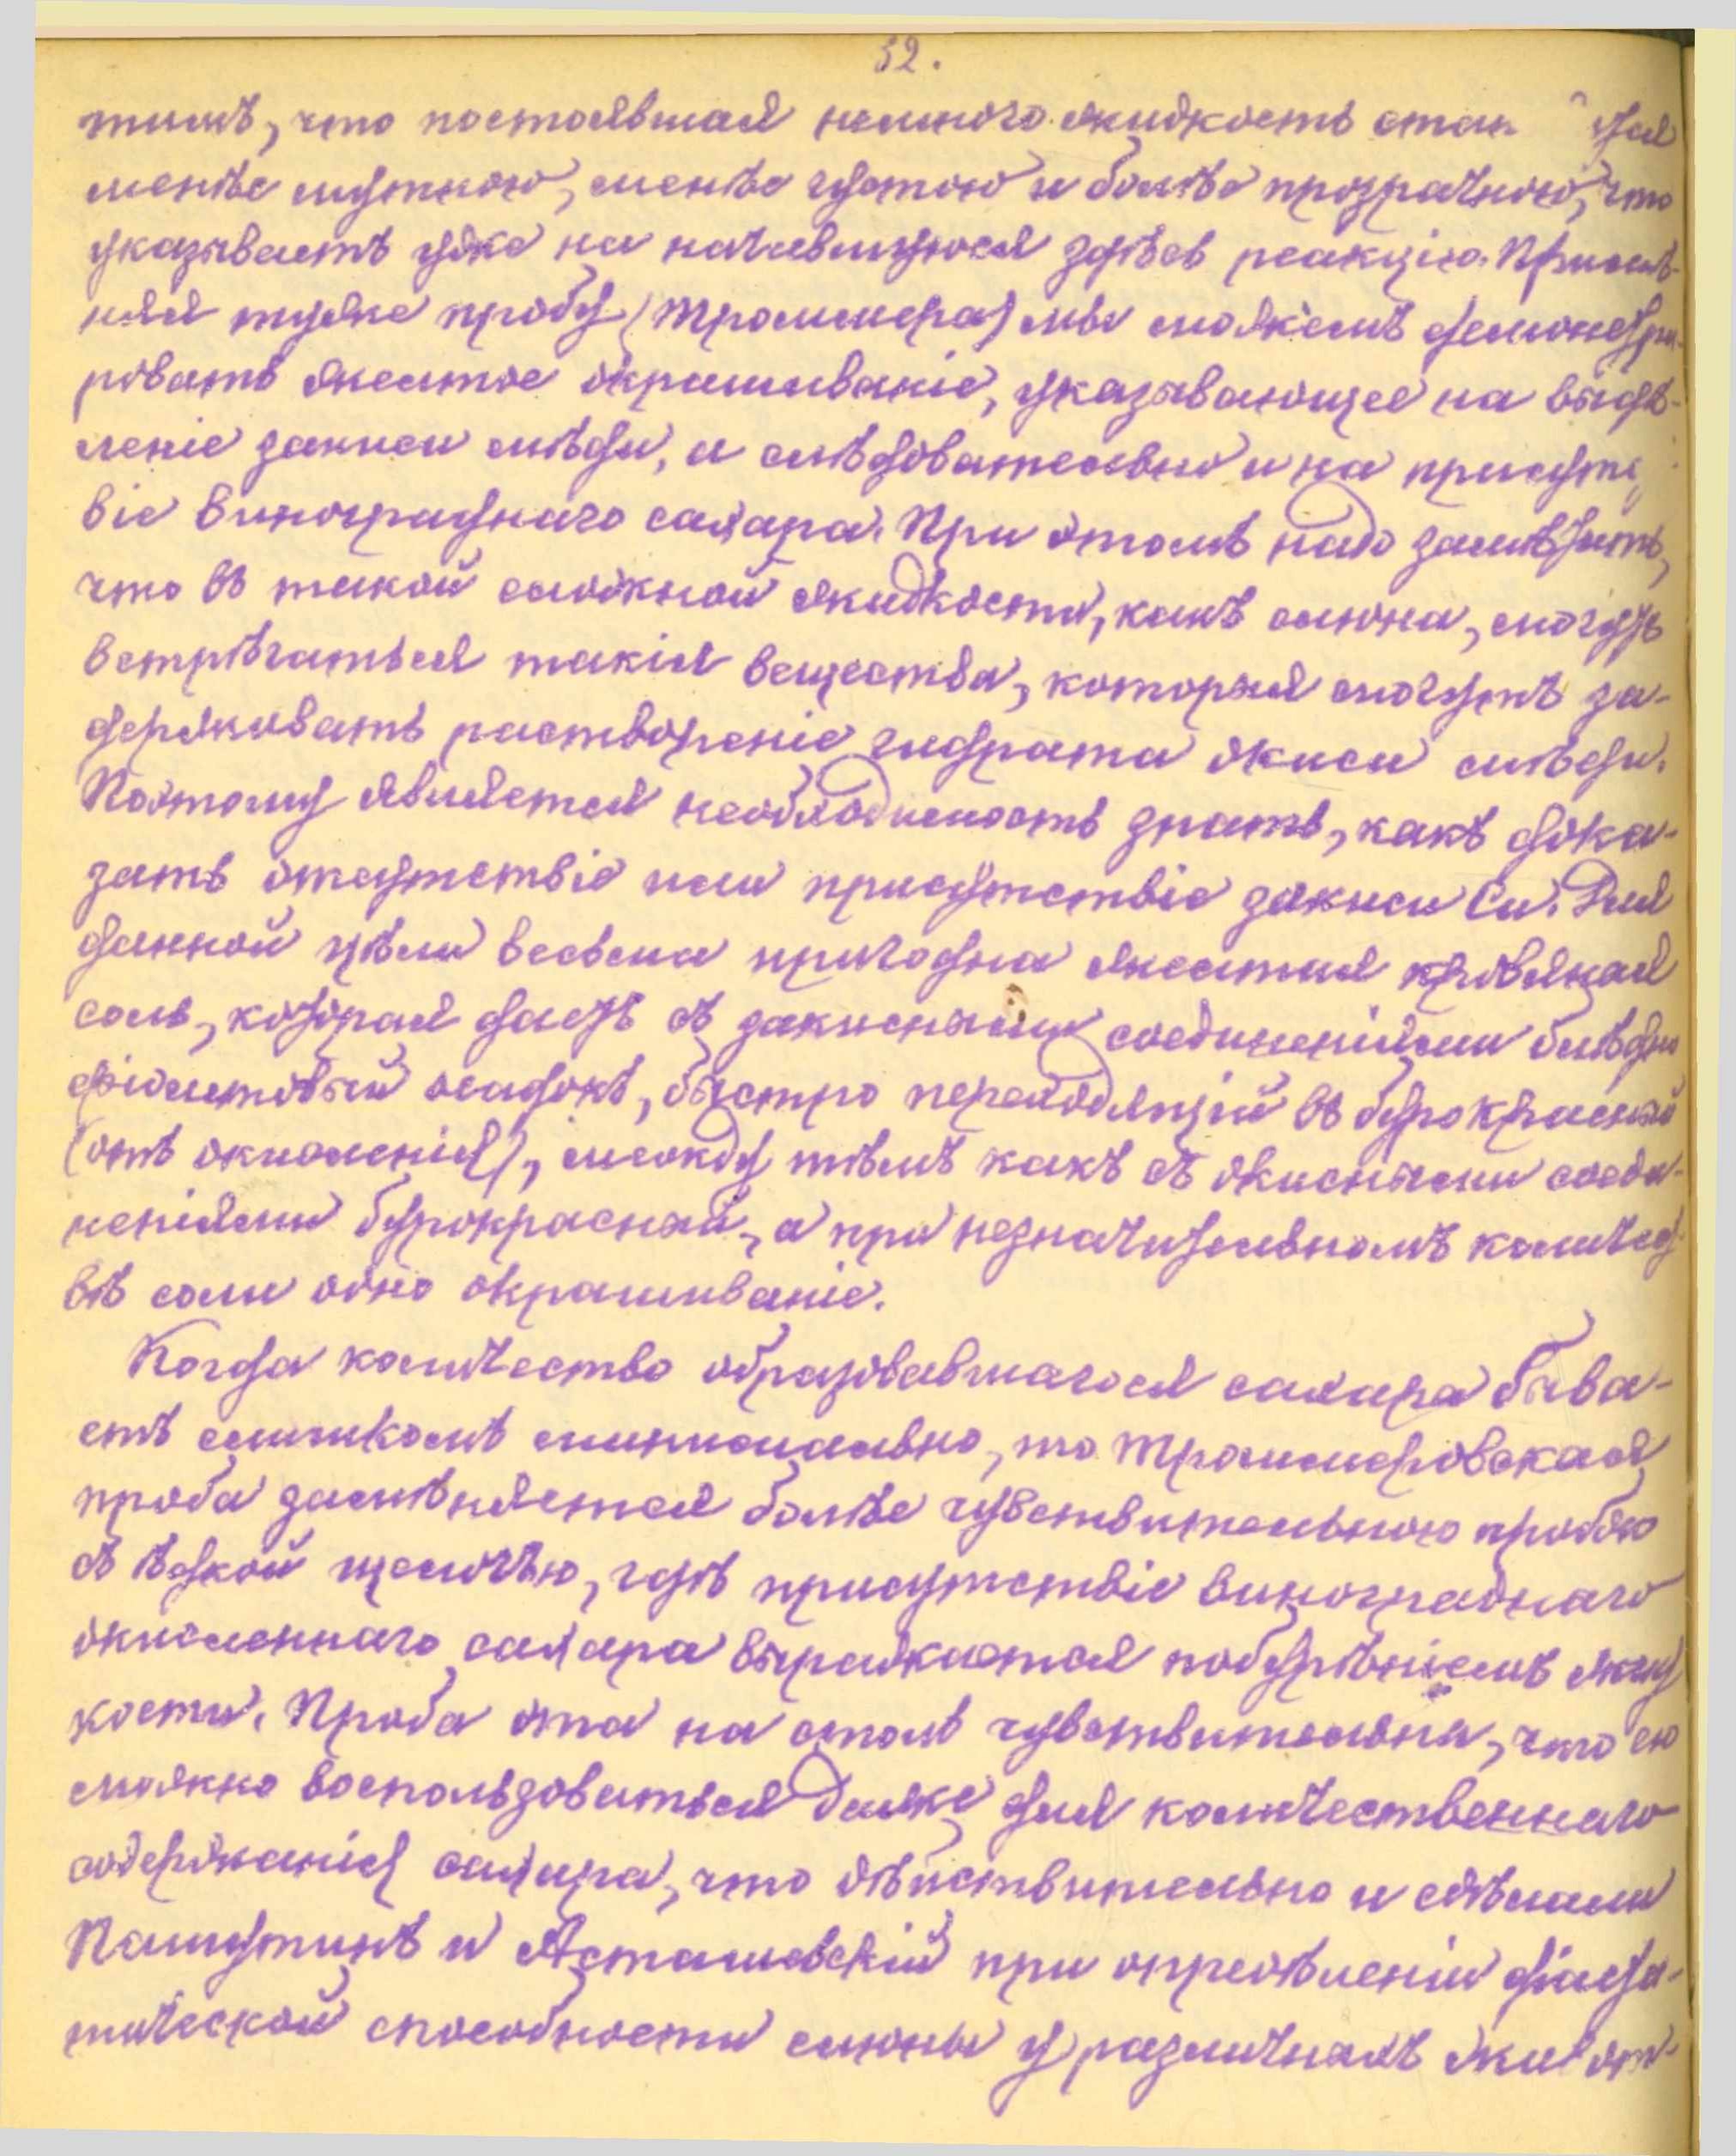 52.
тимъ, что постоявшая немного жидкость
менѣе мутною, менѣе густою и болѣе прозрачною, что
указываетъ уже на начавшуюся здѣсь реакцію. Примѣ-
няя туже пробу (Троммера) мы можемъ демонстри-
ровать желтое окрашиваніе, указывающее на выдѣ-
леніе закиси мѣди, а слѣдовательно и на присутст
віе винограднаго сахара. При этомъ надо замѣтить,
что въ такой сложной жидкости, какъ слюна, могутъ
встрѣчаться такія вещества, которыя могутъ за-
держивать раствореніе гидрата окиси мѣди.
Поэтому является необходимость знать, какъ дока-
зать отсутствіе или присутствіе закиси Cu. Для
данной цѣли весьма пригодна желтая кровяная
соль, которая даетъ съ закисными соединеніями блѣдно
фіолетовый осадокъ, быстро переходящій въ бурокрасный
(отъ окисленія), между тѣмъ какъ съ окисными соеди-
неніями бурокрасный, а при незначительномъ количест
вѣ соли одно окрашиваніе.
Когда количество образовавшагося сахара быва-
етъ слишкомъ минимально, то Троммеровская
проба замѣняется болѣе чувствительною пробою
съ ѣдкой щелочью, гдѣ присутствіе винограднаго
окисленнаго сахара выражается побурѣніемъ жид
кости. Проба эта на столь чувствительна, что ею
можно воспользоваться даже для количественнаго
содержанія сахара, что дѣйствительно и сдѣлали
Пашутинъ и Асташевскій при опредѣленіи діаста-
тической способности слюны у различныхъ живот-